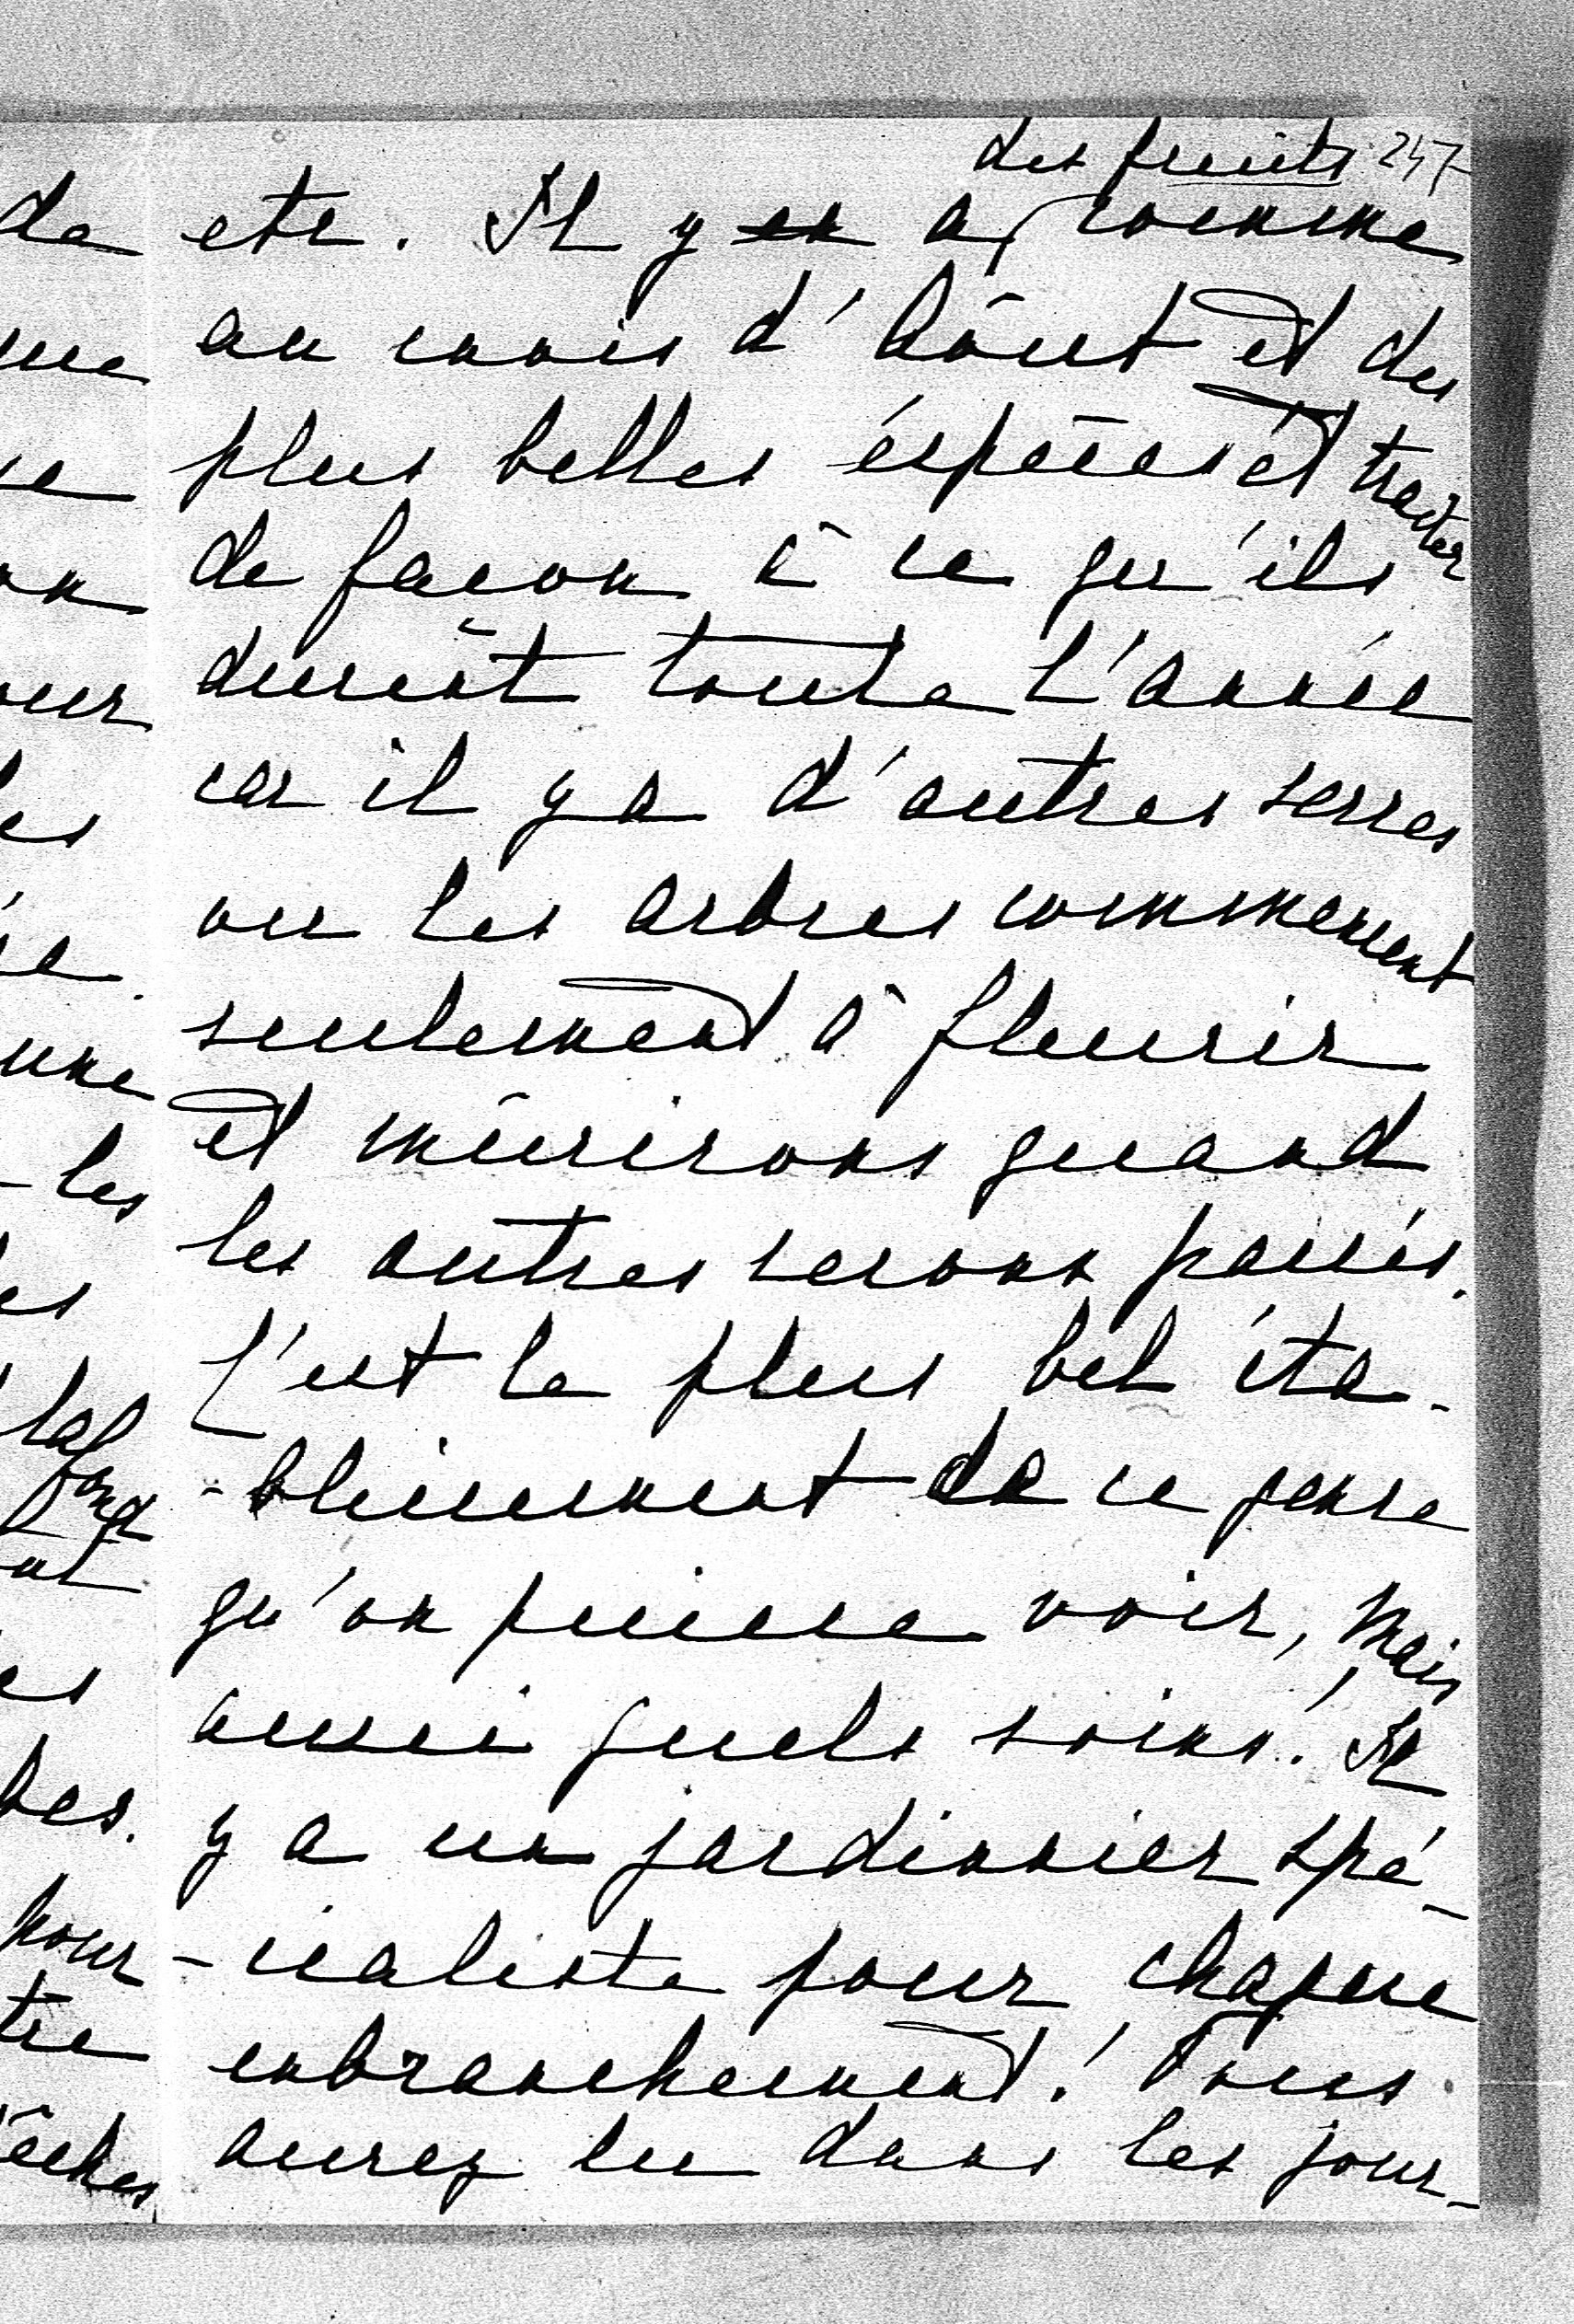 des fruits 247
etc. Il y en a comme
au mois d'Août et des
plus belles éspèces et traiter
de façon à ce qu'ils
durent toute l'année
car il y a d'autres serres
ou les arbres commencent
seulement à fleurir
et mûrirons quand
les autres serons passés.
C'est le plus bel éta-
-blissement de ce genre
qu'on puisse voir, mais
aussi quels soins! Il
y a un jardinnier spé-
-cialiste pour chaque
enbranchement! Vous
aurez lu dans les jour-